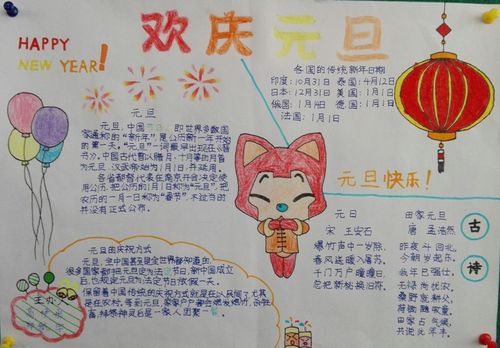 欢庆元旦
HAPPY
NEW YEAR!
各国的传统新年日期
印度：10月31日 泰国：4月12日
日本：12月31日 美国：1月1日
俄国：1月14日 德国：1月1日
法国：1月1日
元旦
元旦，中国节日，即世界多数国
家通称的“新年”，是公历新一年开始
的第一天。“元旦”一词最早出现在《晋
书》。中国古代曾以腊月、十月等的月首
为元旦，汉武帝始为1月1日，并延用。
各省都督代表在南京开会决定使
用公历，把公历的1月1日称为“元旦”，把
农历的一月一日称为“春节”，不过当时
并没有正式公布。
元旦快乐！
元旦的庆祝方式
元旦，全中国甚至是全世界都知道的，
很多国家都把元旦定为法定节日，新中国成立
后，也规定元旦为法定节日放假一天。
保留着中国传统的庆祝方式就是在人民间了，尤其
是在农村，每到元旦，家家户户都会燃放爆竹，杀鸡
宰，拜祭神灵后是一家人团聚一餐。
主办
元日
宋 王安石
爆竹声中一岁除，
春风送暖入屠苏。
千门万户曈曈日，
总把新桃换旧符。
田家元旦
唐 孟浩然
昨夜斗回北，
今朝岁起东。
我年已强仕，
无禄尚忧农。
桑野就耕父，
荷锄随牧童。
田家占气候，
共说此年丰。
古
诗